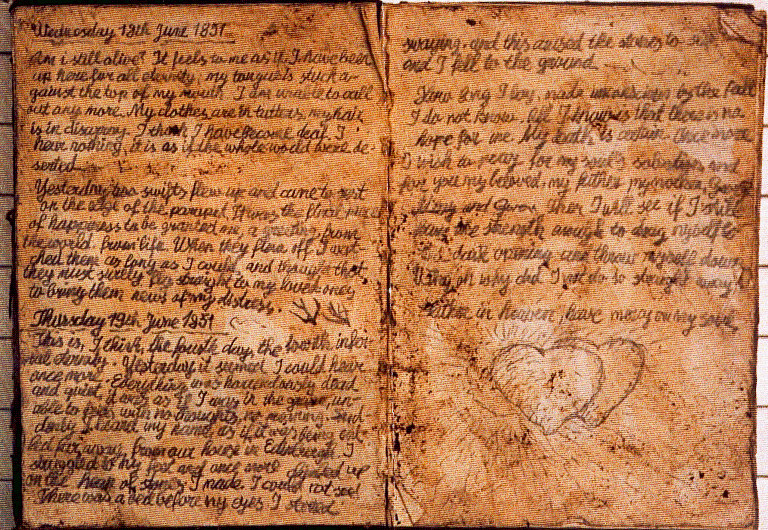 Wednesday 18th June 1851
Am i still alive? It feels to me as if I have been
up here for all eternity, my tongue is stuck a-
gainst the top of my mouth. I am unable to call
out any more. My clothes are in tatters, my hair
is in disarray. I think I have become deaf. I
hear nothing, it is as if the whole world were de-
serted.
Yesterday two swifts flew up and came to rest
on the edge of the parapet. It was the final
of happiness to be granted me, a greeting from
the world, from life. When they flew off I wat-
ched them as long as I could, and thought that
they must surely fly straight to my loved ones
to bring them news of my distress.
Thursday 19th June 1851
This is, I think, the fourth day, the fourth infer-
nal eternity. Yesterday it seemed I could hear
once more. Everything was horrendously dead
and quiet, it was as if I was in the grave, un-
able to feel, with no thoughts, no meaning. Sud-
denly I heard my name, as if it was being cal-
led far away, from our house in Edinburgh. I
struggled to my feet and once more climbed up
on the heap of stones I made. I could not see!
There was a red before my eyes. I stood
swaying, and this caused the stones to
and I fell to the ground.
How long I lay, made unconscious by the fall
I do not know. All I know is that there is no
hope for me. My death is certain. Once more
I wish to pray for my soul's salvation and
for you my beloved, my father, my mother, George
and Then I will see if I still
have the strength enough to drag myself to
dark opening and throw myself down
Why oh why did I not do so straight away?
Father in heaven, have mercy on my soul.